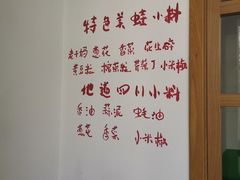 特色美蛙小料
老干妈 葱花 香菜 花生碎
黄豆粒 榨菜粒 小米椒
地道四川小料
香油 蒜泥 蚝油
葱花 香菜 小米椒